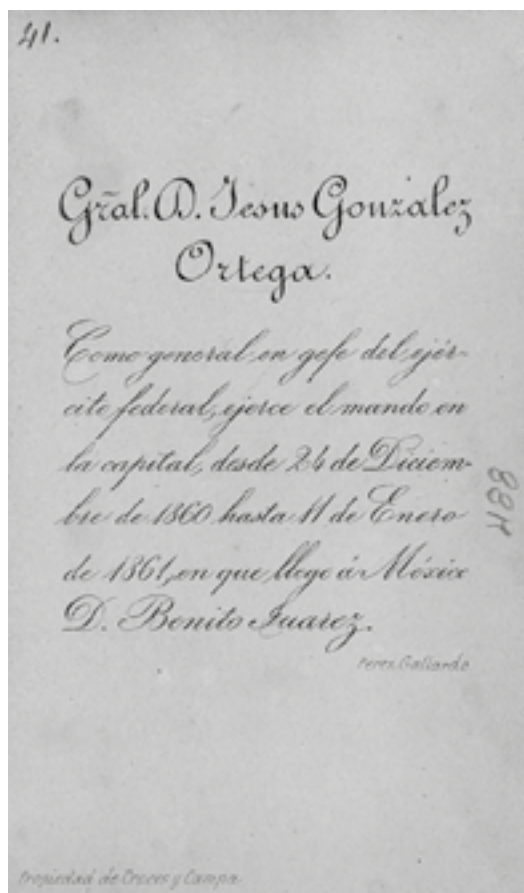 41.
Gral. D. Jesus Gonzalez
Ortega.
Como general en gefe del ejér-
cito federal, ejerce el mando en
la capital, desde 24 de Diciem-
bre de 1860 hasta 11 de Enero
de 1861, en que llego á México
D. Benito Juarez.
Perez Gallardo
Propiedad de Cruces y Campa.